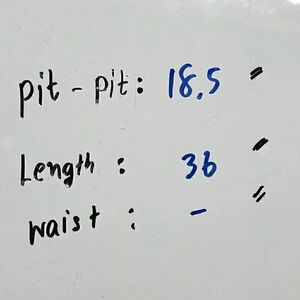 pit - pit : 18.5 "
Length : 36 "
waist : - "